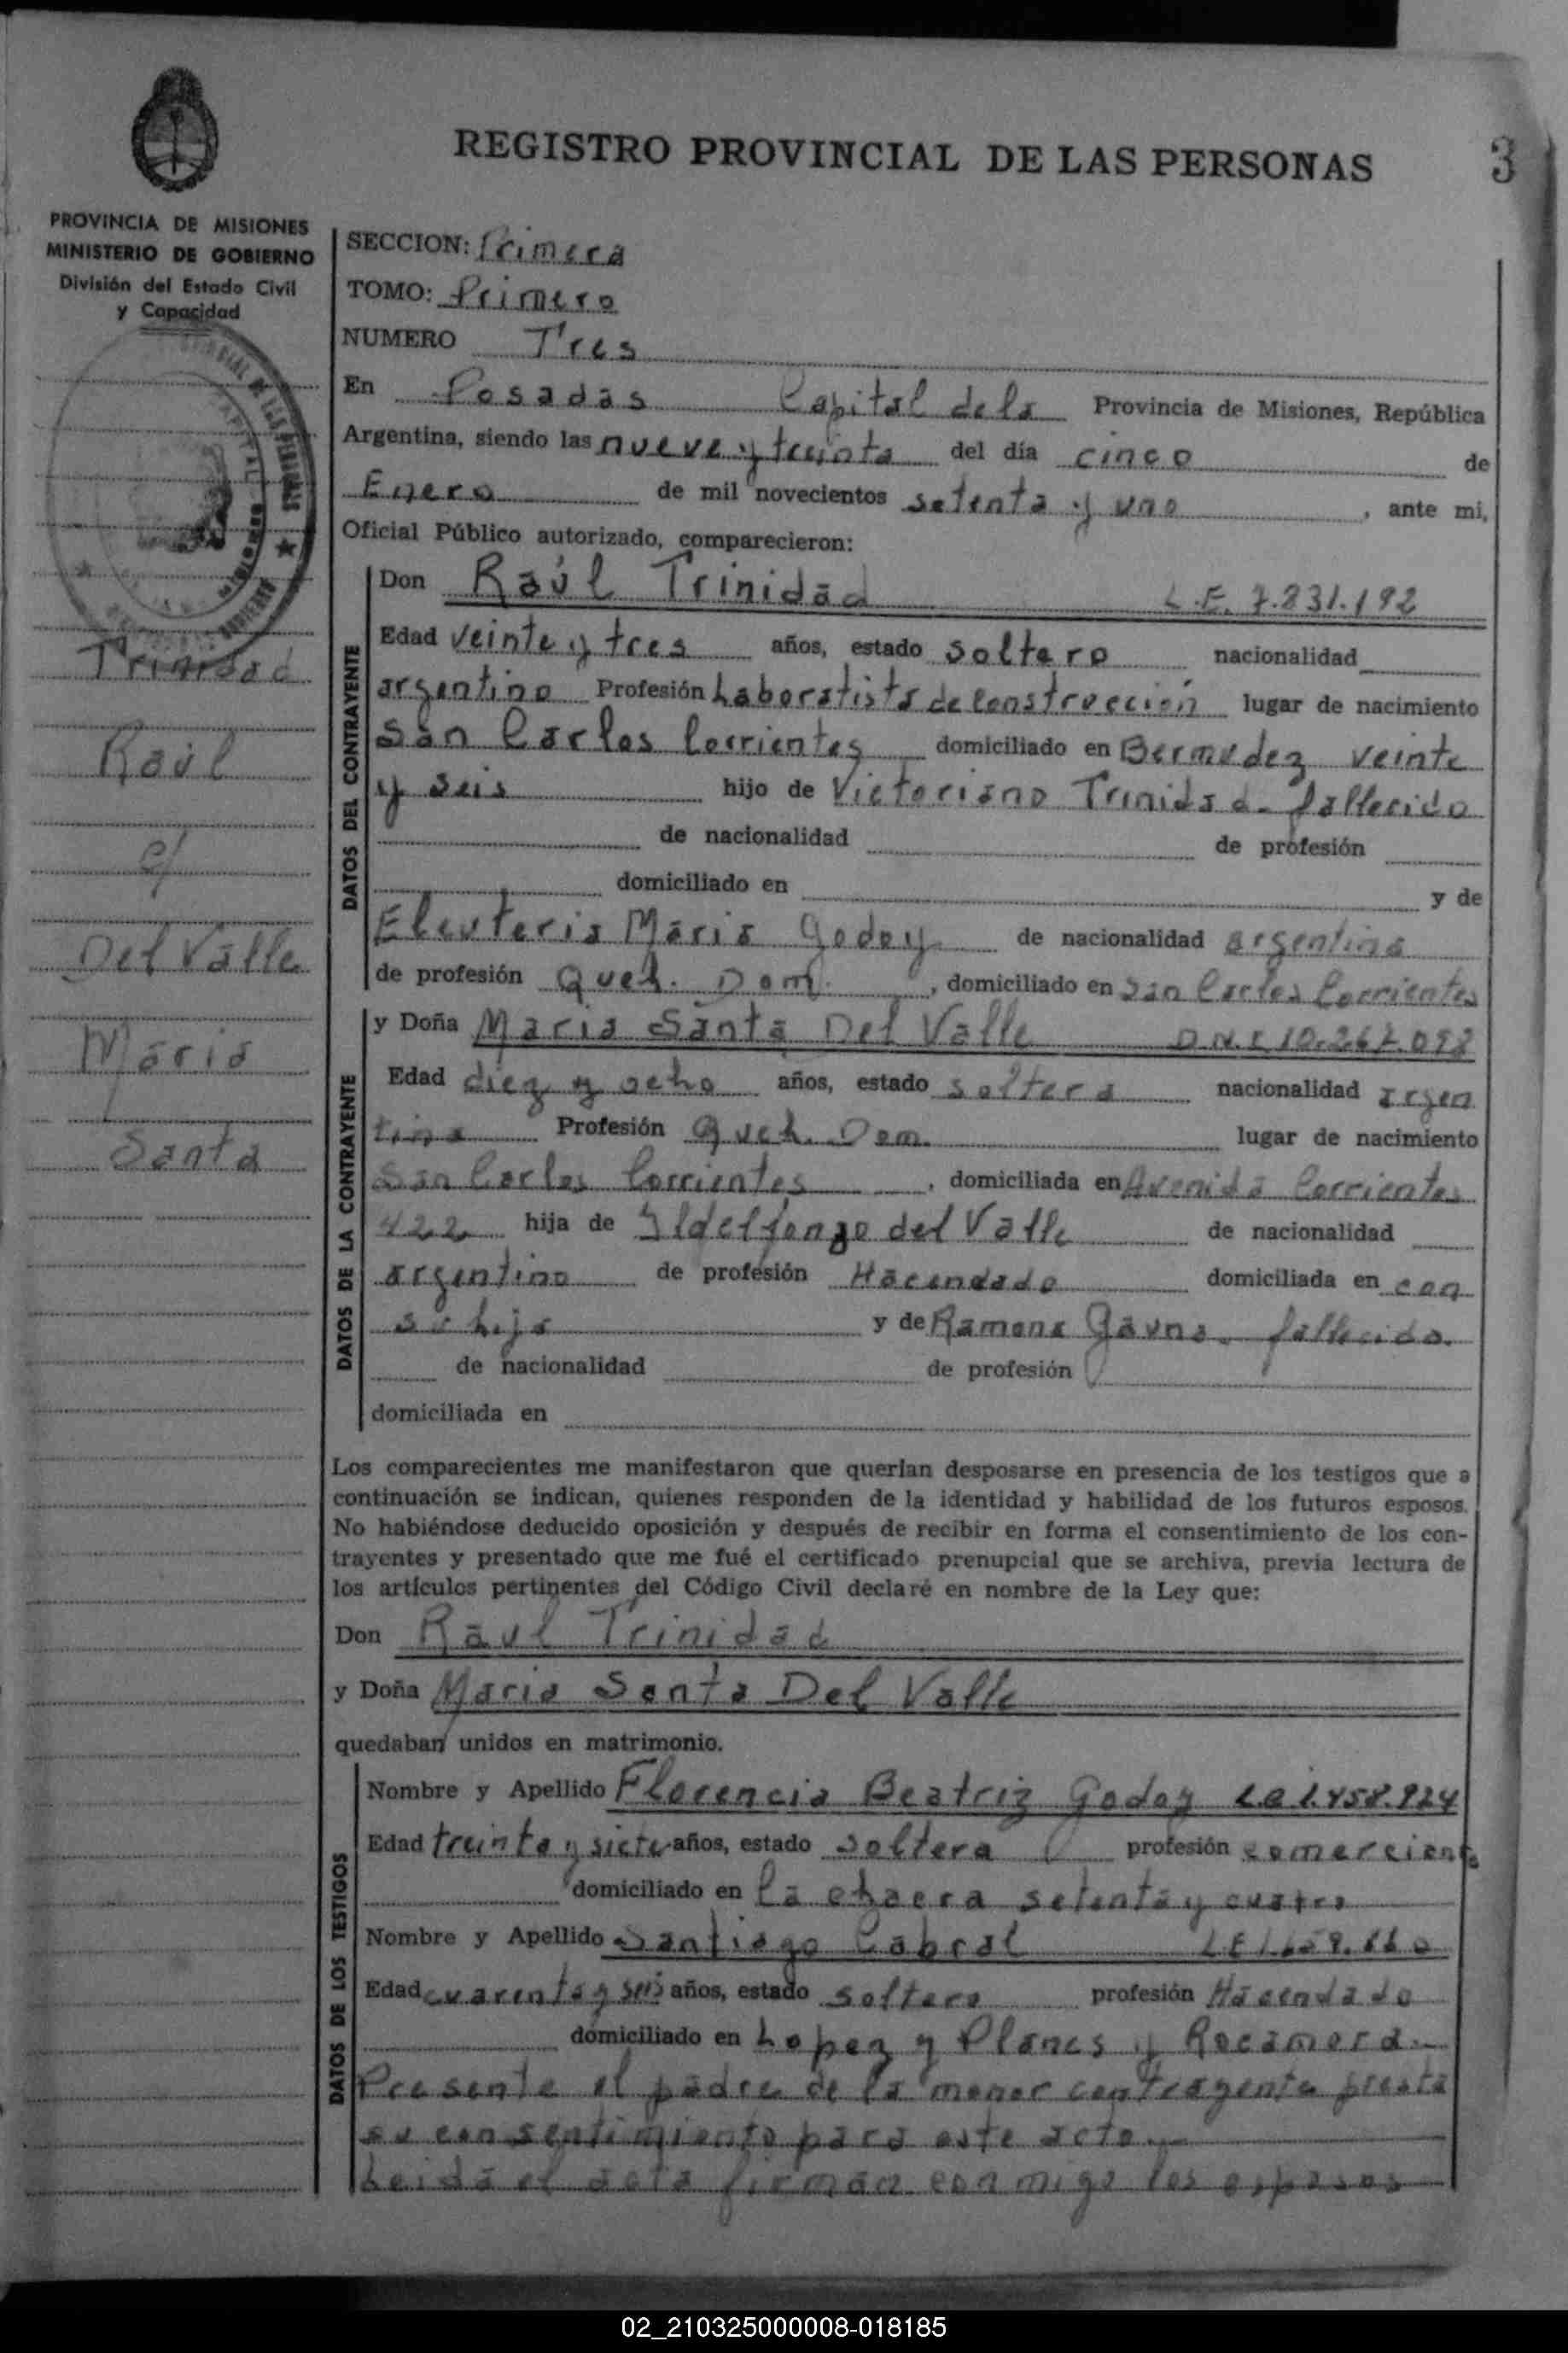 REGISTRO PROVINCIAL DE LAS PERSONAS
3
PROVINCIA DE MISIONES
MINISTERIO DE GOBIERNO
División del Estado Civil
y Capacidad
Trinidad
Raúl
c/
Del Valle
Maria
Santa
SECCION: Primera
TOMO: Primero
NUMERO Tres
En Posadas Capital de la Provincia de Misiones, República
Argentina, siendo las nueve y treinta del día cinco de
Enero de mil novecientos setenta y uno, ante mi,
Oficial Público autorizado, comparecieron:
DATOS DEL CONTRAYENTE
Don Raúl Trinidad L.E. 7.831.192
Edad veinte y tres años, estado soltero nacionalidad
argentino Profesión Laboratista de construcción lugar de nacimiento
San Carlos Corrientes domiciliado en Bermudez veinte
y seis hijo de Victoriano Trinidad - fallecido
de nacionalidad de profesión
domiciliado en y de
Eleuteria Maria Godoy de nacionalidad argentina
de profesión Queh. Dom., domiciliado en San Carlos Corrientes
DATOS DE LA CONTRAYENTE
y Doña Maria Santa Del Valle D.N.I. 10.267.092
Edad diez y ocho años, estado soltera nacionalidad argen
tina Profesión Queh. Dom. lugar de nacimiento
San Carlos Corrientes, domiciliada en Avenida Corrientes
422 hija de Ildelfonzo del Valle de nacionalidad
argentino de profesión Hacendado domiciliada en con
su hija y de Ramona Gauna - fallecida.
de nacionalidad de profesión
domiciliada en
Los comparecientes me manifestaron que querían desposarse en presencia de los testigos que a
continuación se indican, quienes responden de la identidad y habilidad de los futuros esposos.
No habiéndose deducido oposición y después de recibir en forma el consentimiento de los con-
trayentes y presentado que me fué el certificado prenupcial que se archiva, previa lectura de
los artículos pertinentes del Código Civil declaré en nombre de la Ley que:
Don Raul Trinidad
y Doña Maria Santa Del Valle
quedaban unidos en matrimonio.
DATOS DE LOS TESTIGOS
Nombre y Apellido Florencia Beatriz Godoy
Edad treinta y siete años, estado soltera profesión comerciante
domiciliado en la chacra setenta y cuatro
Nombre y Apellido Santiago Cabral
Edad cuarenta y seis años, estado soltero profesión Hacendado
domiciliado en Lopez y Planes y Rocamora.-
Presente el padre de la menor contrayente presta
su consentimiento para este acto.-
Leida el acta firman conmigo los esposos
02_210325000008-018185